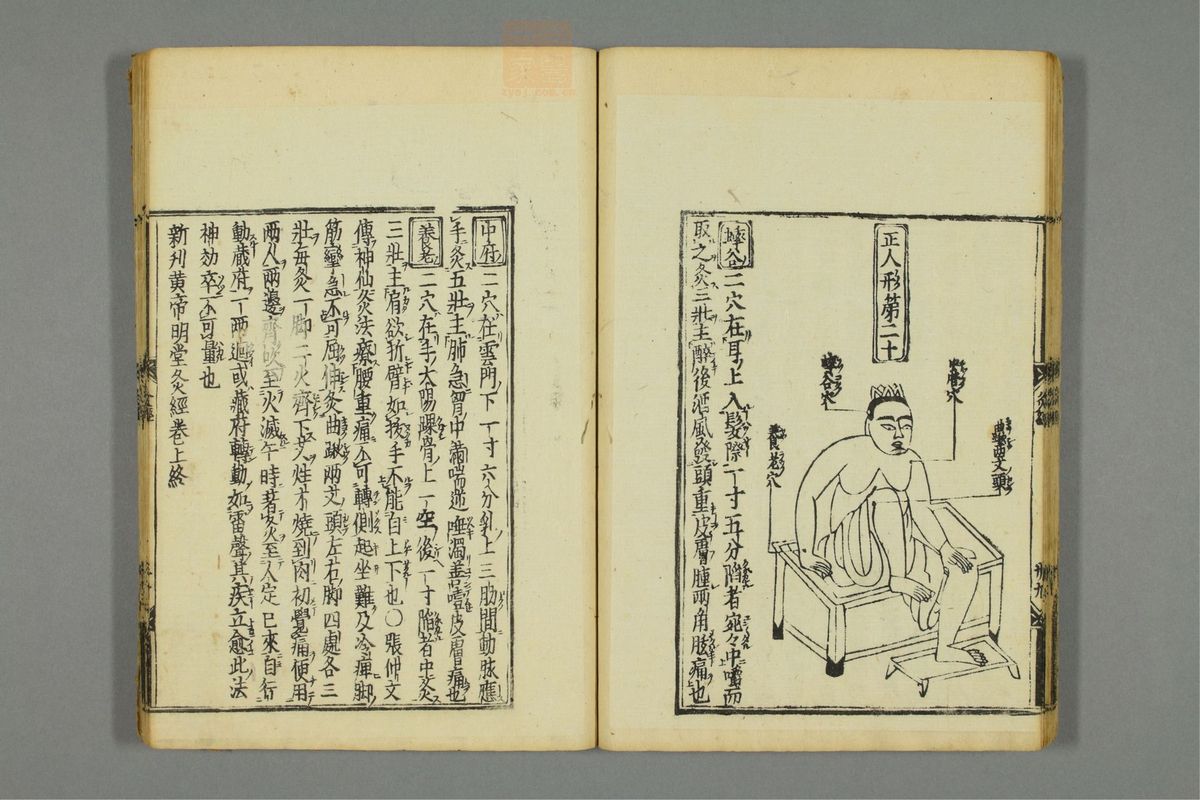 正人形第二十
率谷穴
中府穴
曲䐐両文頭
養老穴
率谷 二穴在耳上入髮際一寸五分陷者宛々中嚼而
取之灸三壯主醉後酒風發頭重皮膚腫兩角眩痛也
中府 二穴在雲門下一寸六分乳上三肋間動脉應
手灸五壯主肺急胷中滿喘逆唾濁善噎皮膚痛也
養老 二穴在手太陽踝骨上一空後一寸陷者中灸
三壯主肩欲折臂如拔手不能自上下也〇張仲文
傳神仙灸法療腰重痛不可轉側起坐難及冷痺脚
筋攣急不可屈伸灸曲䐐兩文頭左右脚四處各三
壯每灸一脚二火齊下艾炷才燒到肉初覺痛便用
兩人兩邊齊吹至火滅午時著灸至人定已來自行
動藏府一兩迴或藏府轉動如雷聲其疾立愈此法
神効卒不可量也
新刋黃帝明堂灸經卷上終